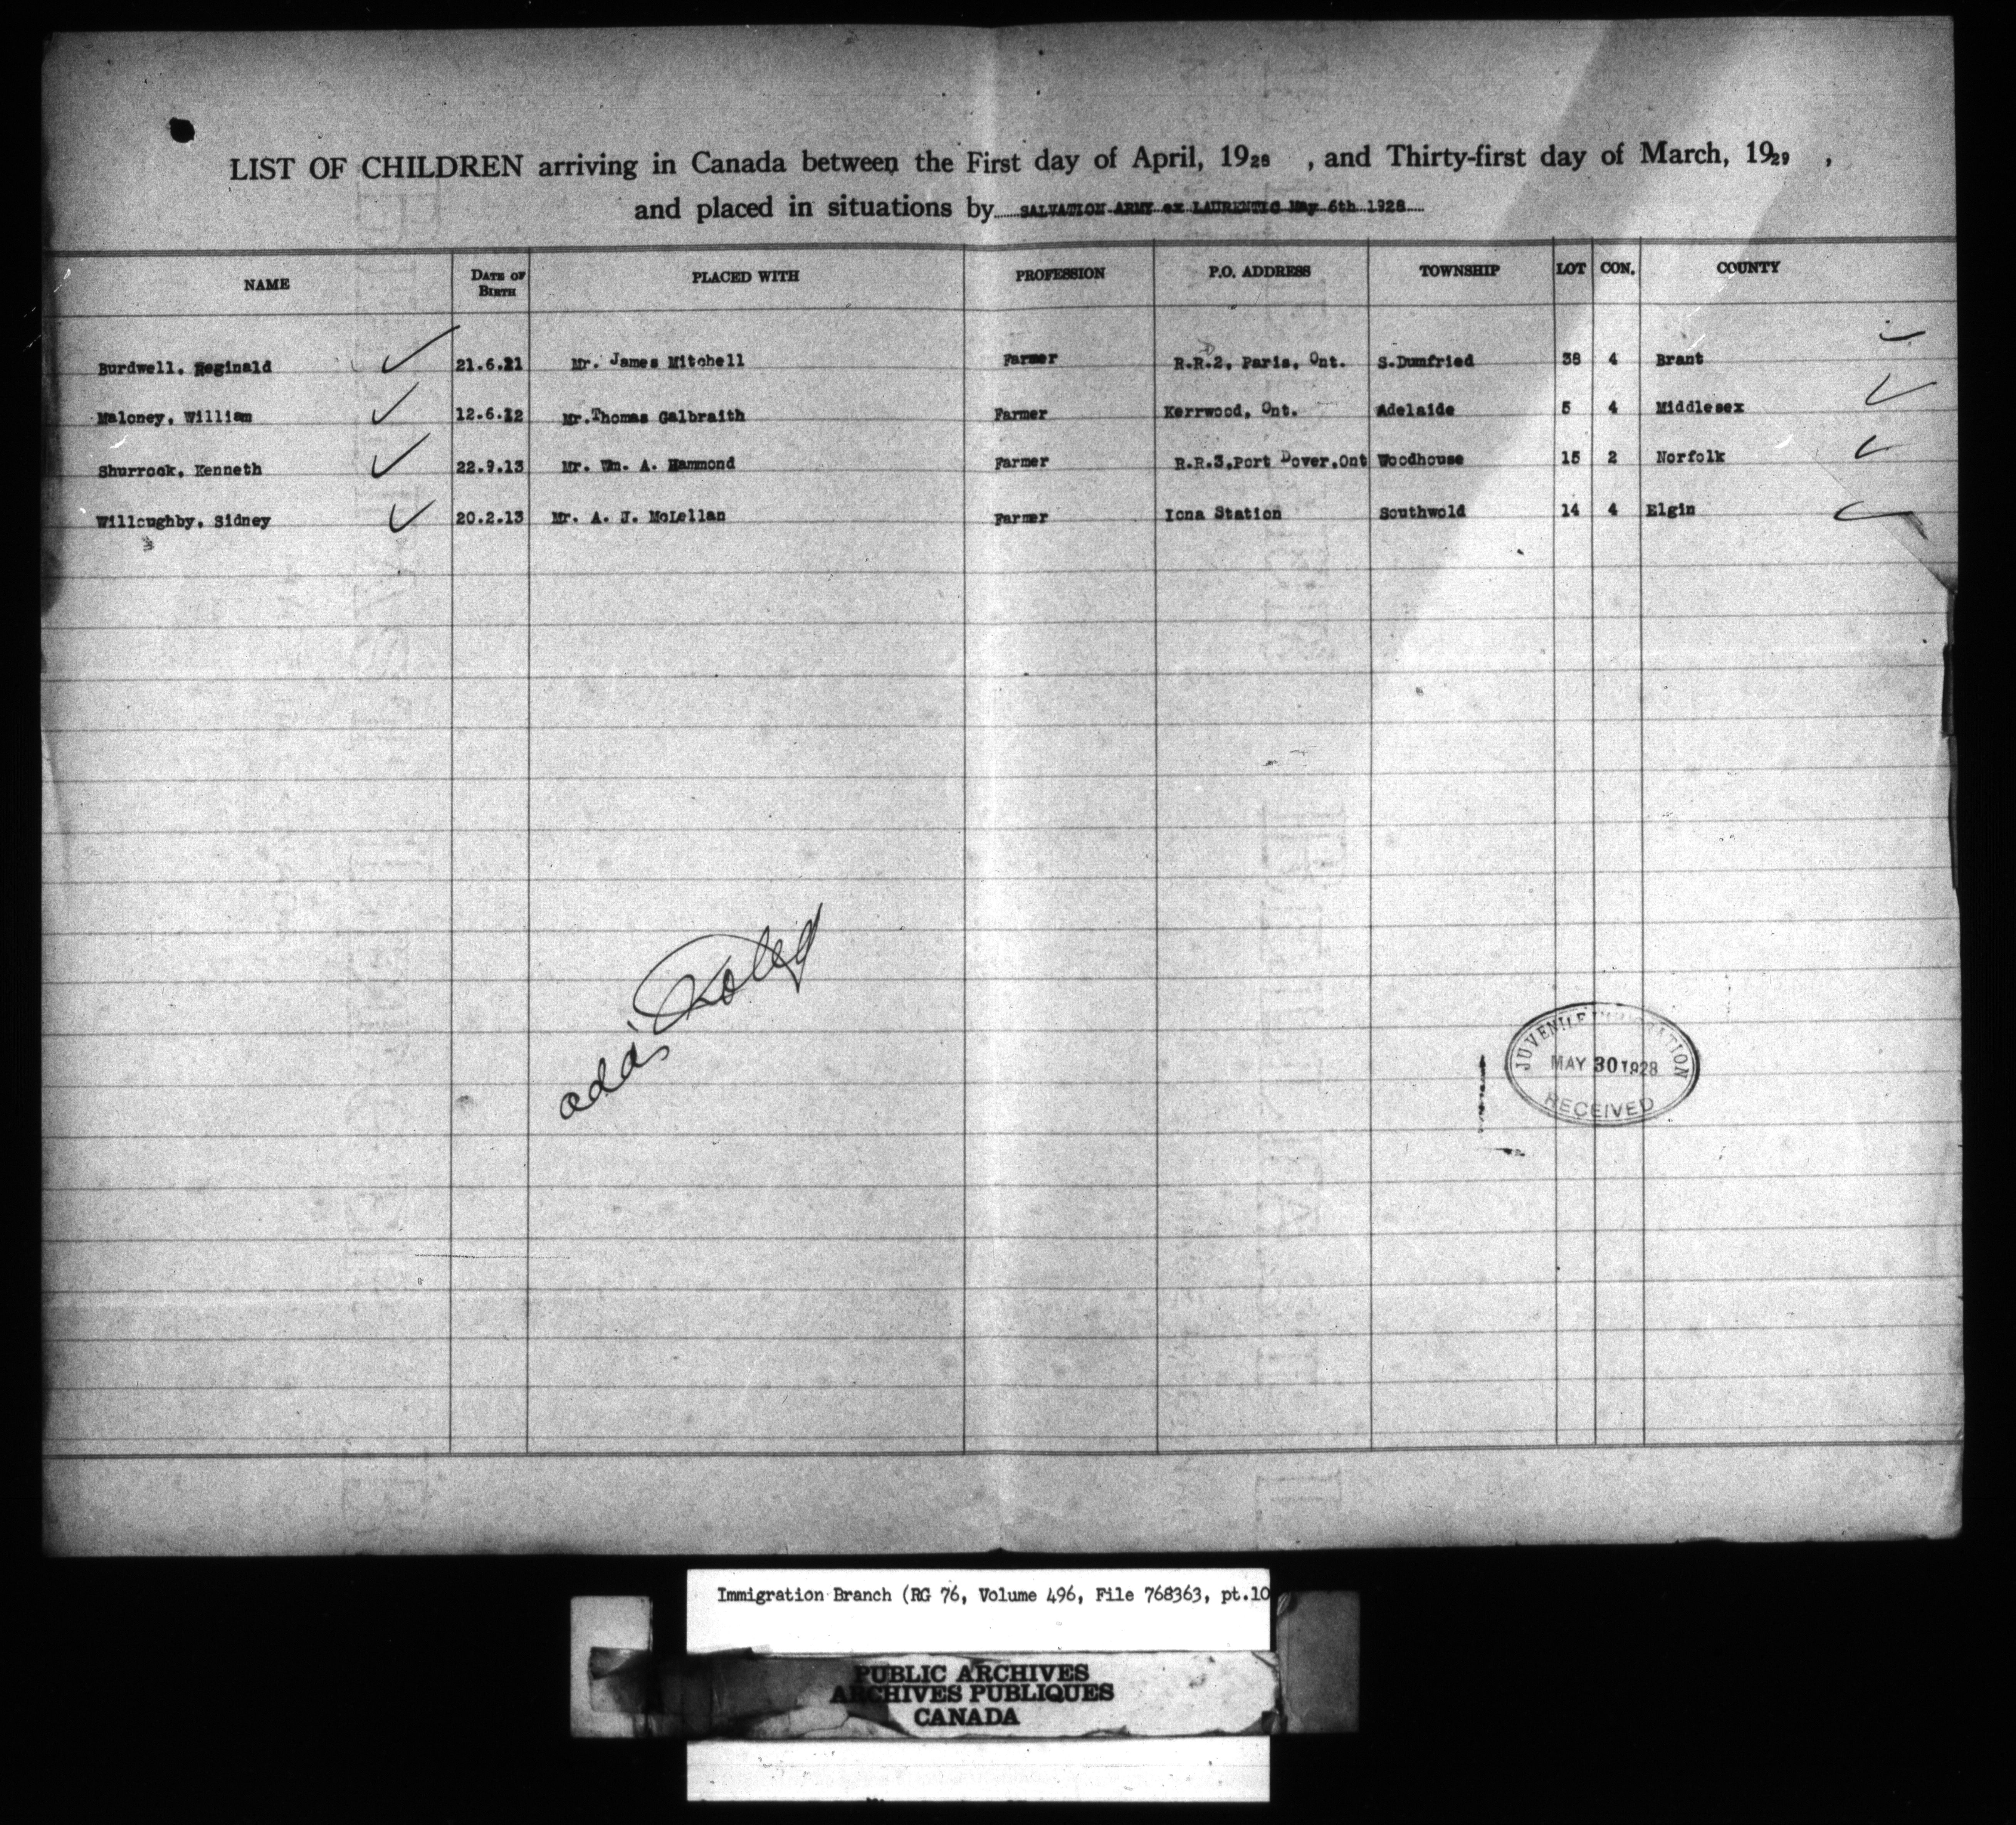 LIST OF CHILDREN arriving in Canada between the First day of April, 1928 , and Thirty-first day of March, 1929 ,
and placed in situations by SALVATION ARMY ex LAURENTIC May 6th 1928
NAME DATE OF BIRTH PLACED WITH PROFESSION P.O. ADDRESS TOWNSHIP LOT CON. COUNTY
Burdwell, Reginald 21.6.21 Mr. James Mitchell Farmer R.R.2, Paris, Ont. S.Dumfried 38 4 Brant
Maloney, William 12.6.12 Mr.Thomas Galbraith Farmer Kerrwood, Ont. Adelaide 5 4 Middlesex
Shurrock, Kenneth 22.9.13 Mr. Wm. A. Hammond Farmer R.R.3,Port Dover,Ont Woodhouse 15 2 Norfolk
Willoughby, Sidney 20.2.13 Mr. A. J. McLellan Farmer Iona Station Southwold 14 4 Elgin
JUVENILE IMMIGRATION
MAY 30 1928
RECEIVED
Immigration Branch (RG 76, Volume 496, File 768363, pt.10
PUBLIC ARCHIVES
ARCHIVES PUBLIQUES
CANADA